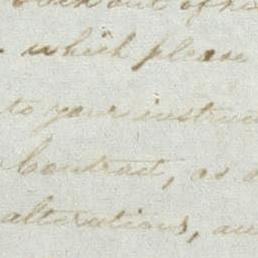 out of
which please
to your
Contract, as
alterations,